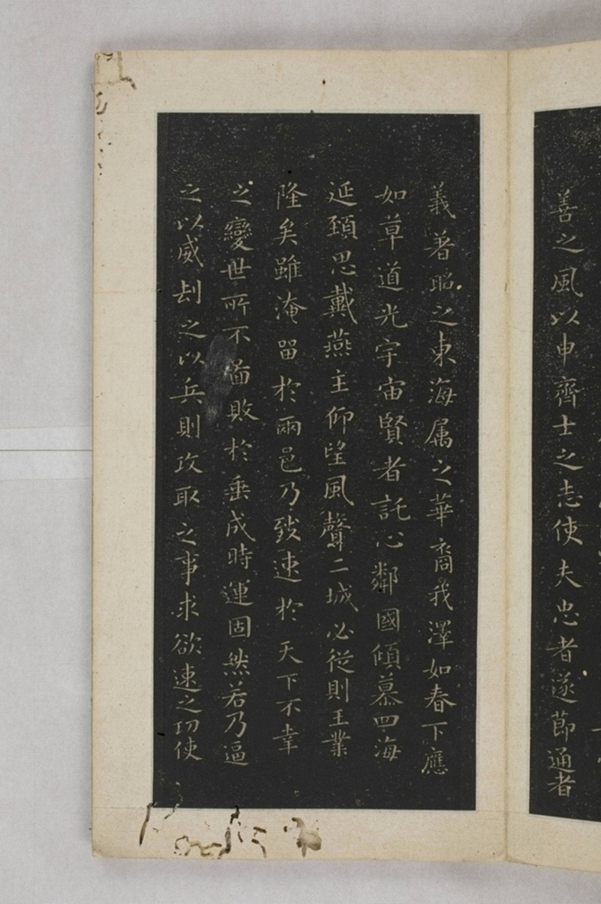 善之風以申齊士之志使夫忠者遂節通者
義著昭之東海屬之華裔我澤如春下應
如草道光宇宙賢者託心鄰國傾慕四海
延頸思戴燕主仰望風聲二城必從則王業
隆矣雖淹留於兩邑乃致速於天下不幸
之變世所不圖敗於垂成時運固然若乃逼
之以威劫之以兵則攻取之事求欲速之功使